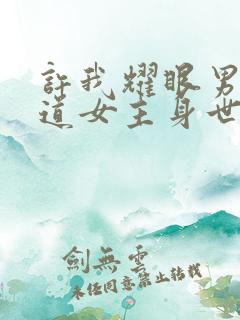 許我耀眼男
道女主身世
劍無雲
未經同意禁止轉載